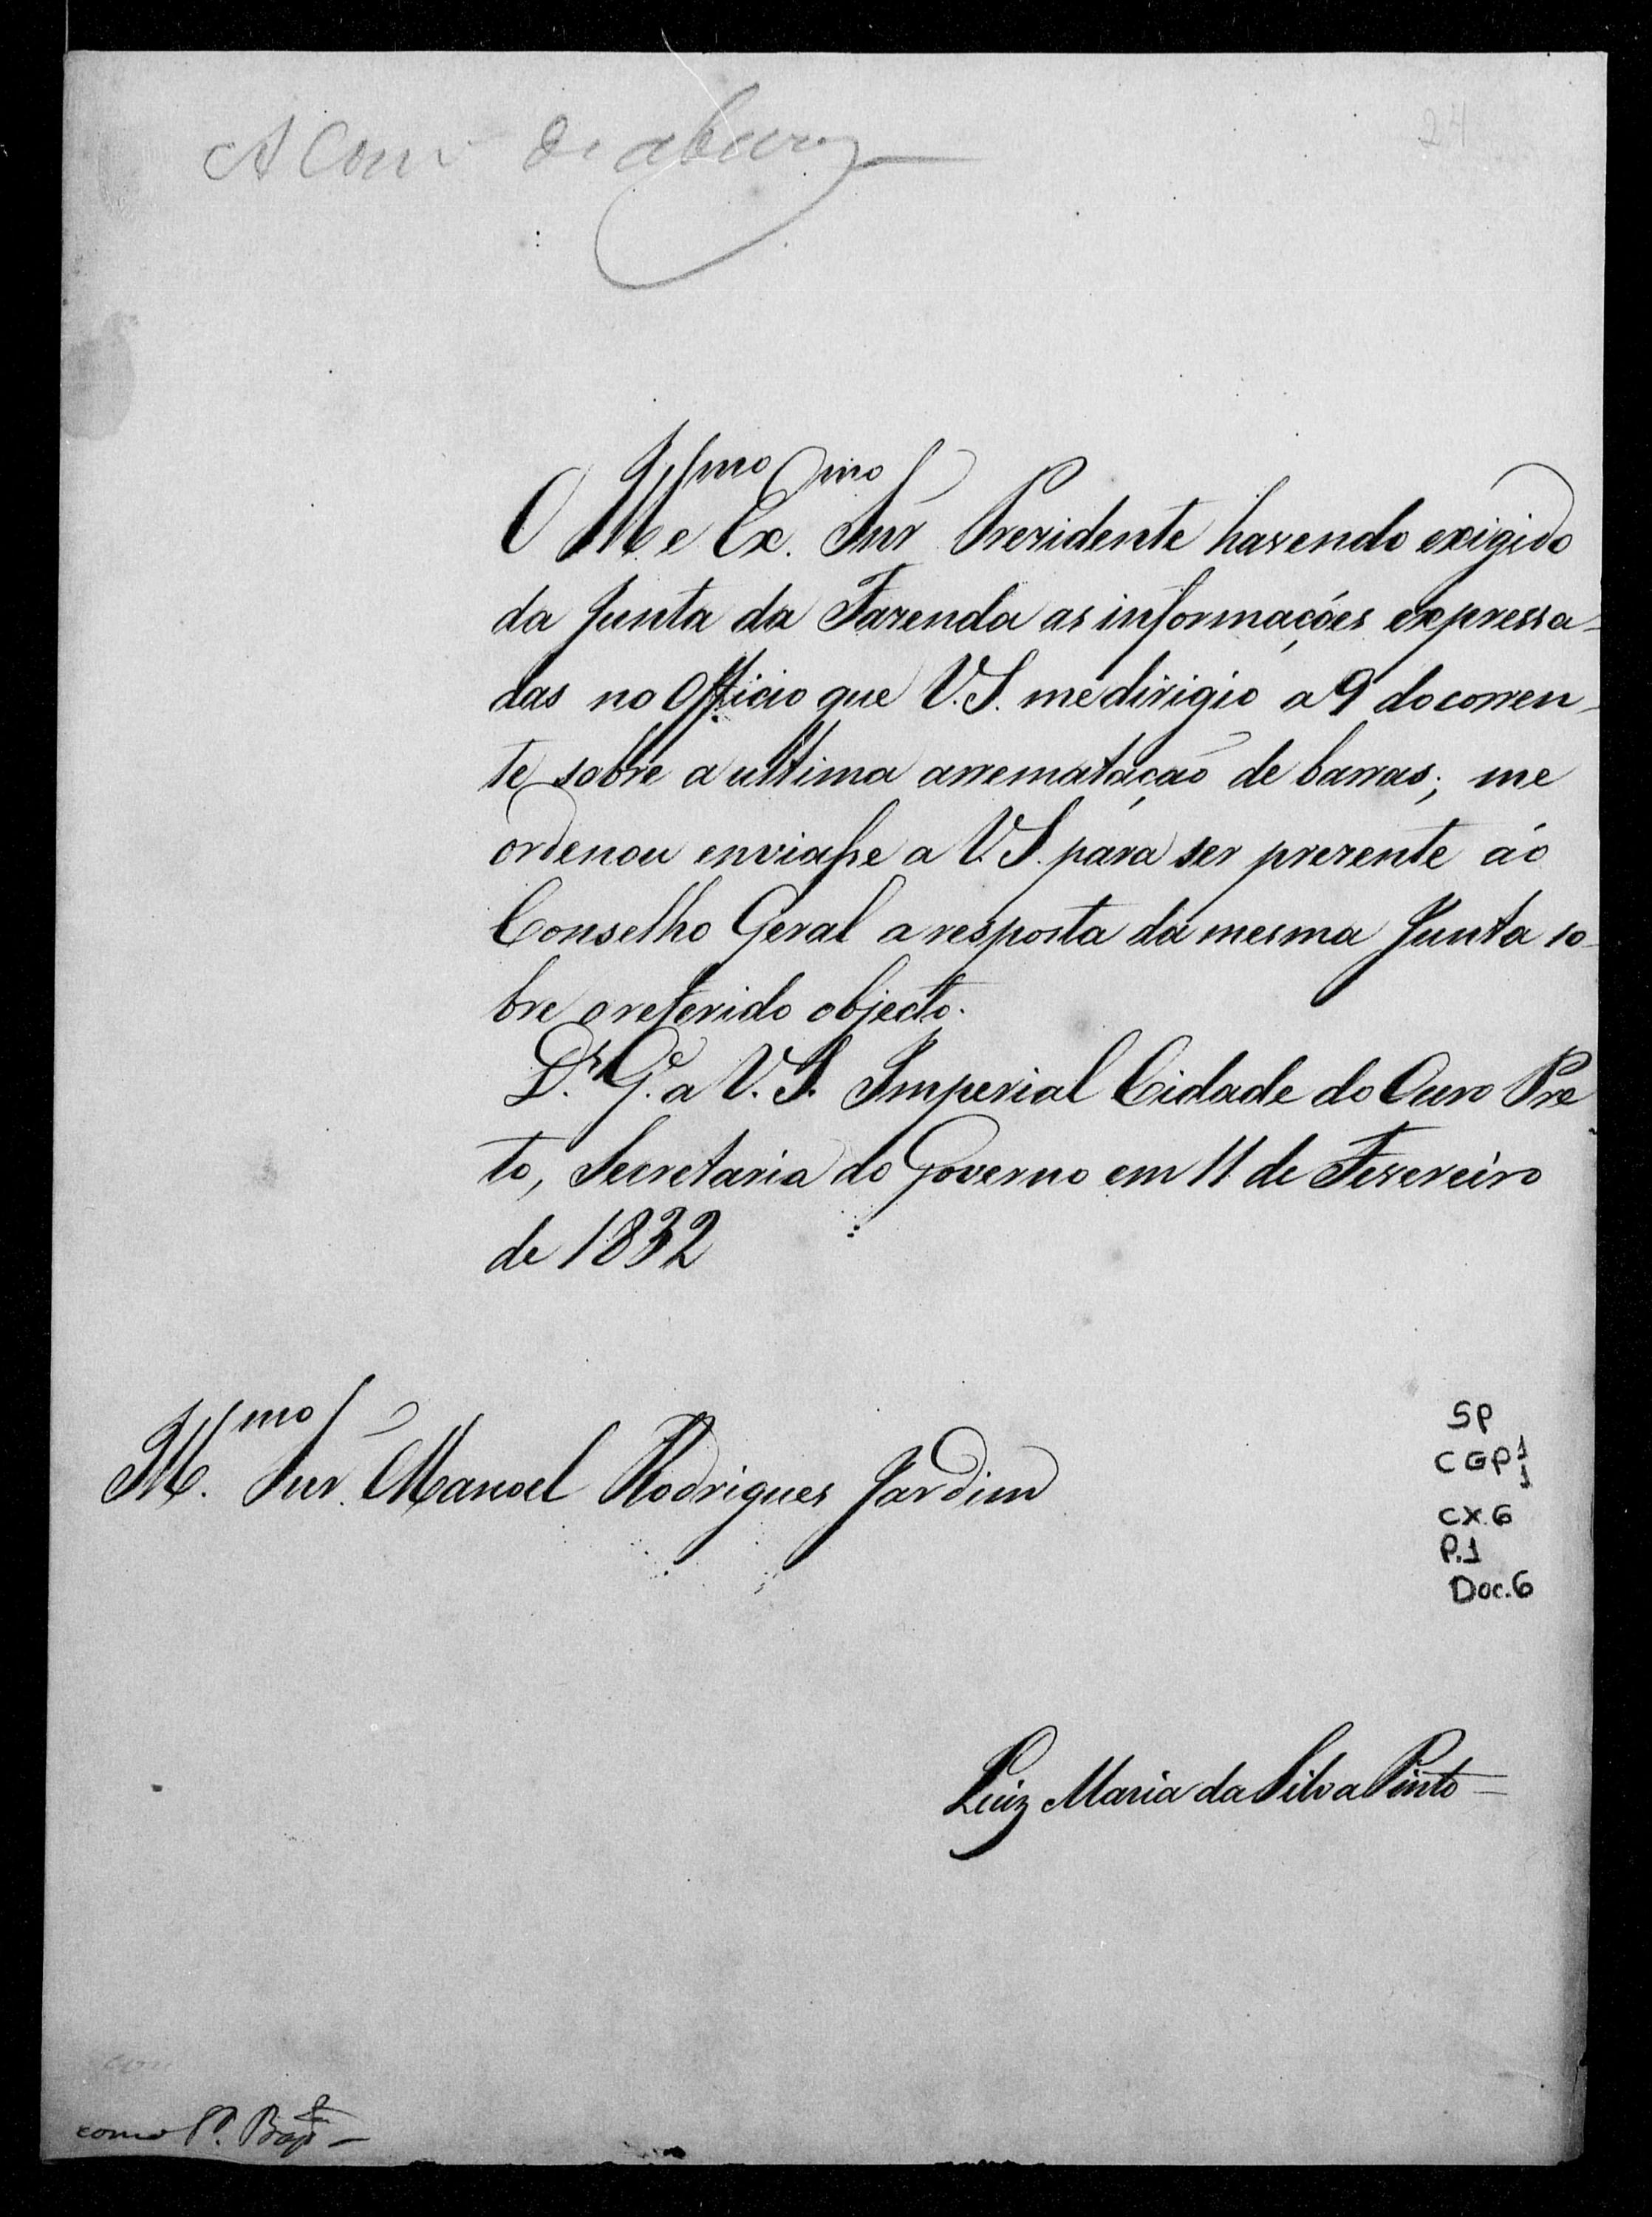 A Com
24
O Ill.mo e Ex.mo Snr Prezidente havendo exigido
da Junta da Fazenda as informações expressa-
das no Officio que V.S. me dirigio a 9 do corren-
te sobre a ultima arrematação de barras; me
ordenou enviasse a V.S. para ser prezente áo
Conselho Geral a resposta da mesma Junta so-
bre o referido objecto.
D.s G.e a V.S. Imperial Cidade do Ouro Pre
to, Secretaria do Governo em 11 de Fevereiro
de 1832
Ill.mo Snr. Manoel Rodrigues Jardim
SP
CGP 1
1
CX.6
P.1
Doc.6
Luiz Maria da Silva Pinto
como P.